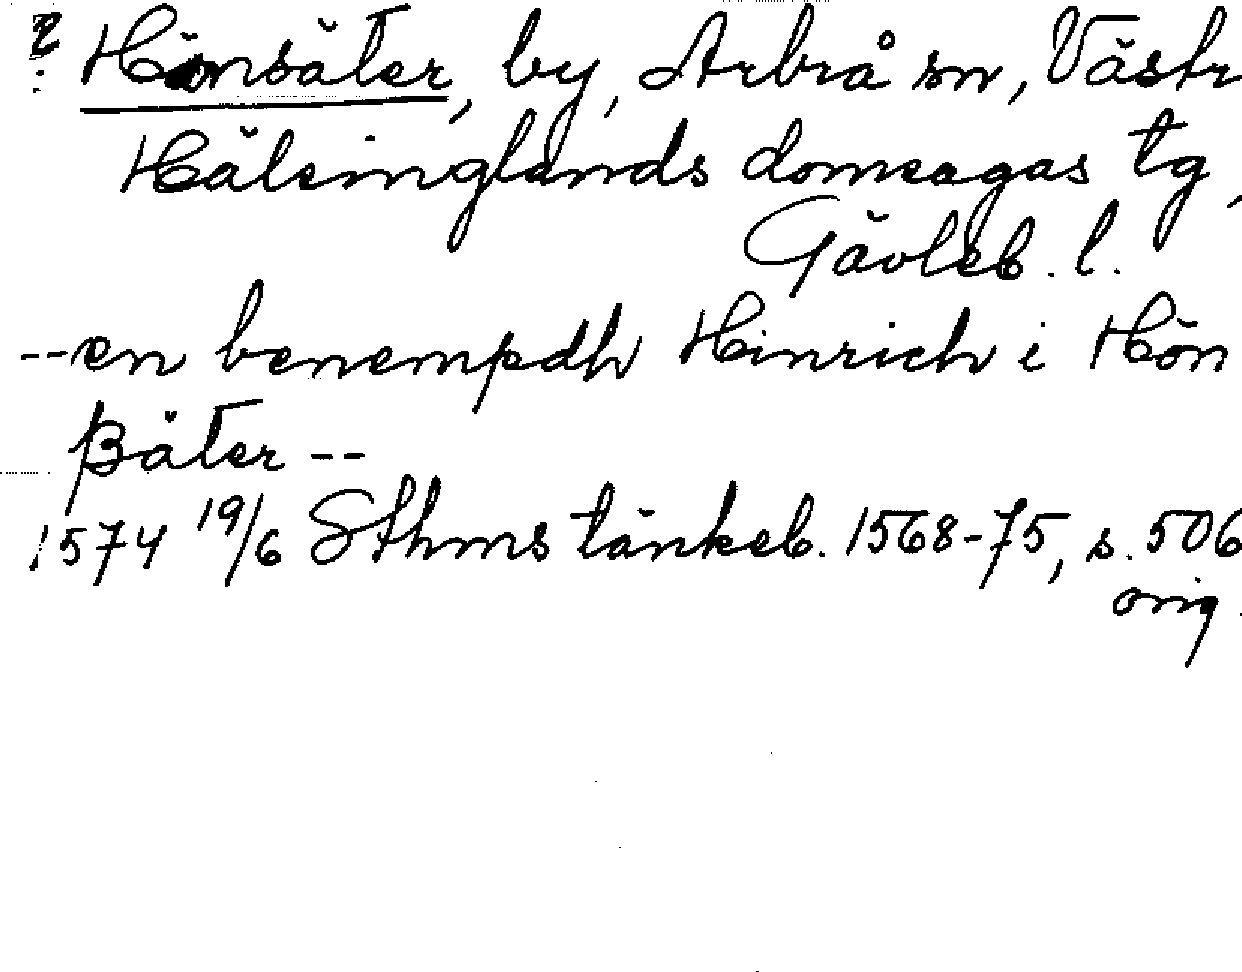 ? Hönsäter, by, Arbrå sn, Västr
Hälsinglands domsagas tg,
Gävleb. l.
--en benempdh Hinrich i Hön
ßäter --
1574 19/6 Sthms tänkeb. 1568-75, s. 506
orig.